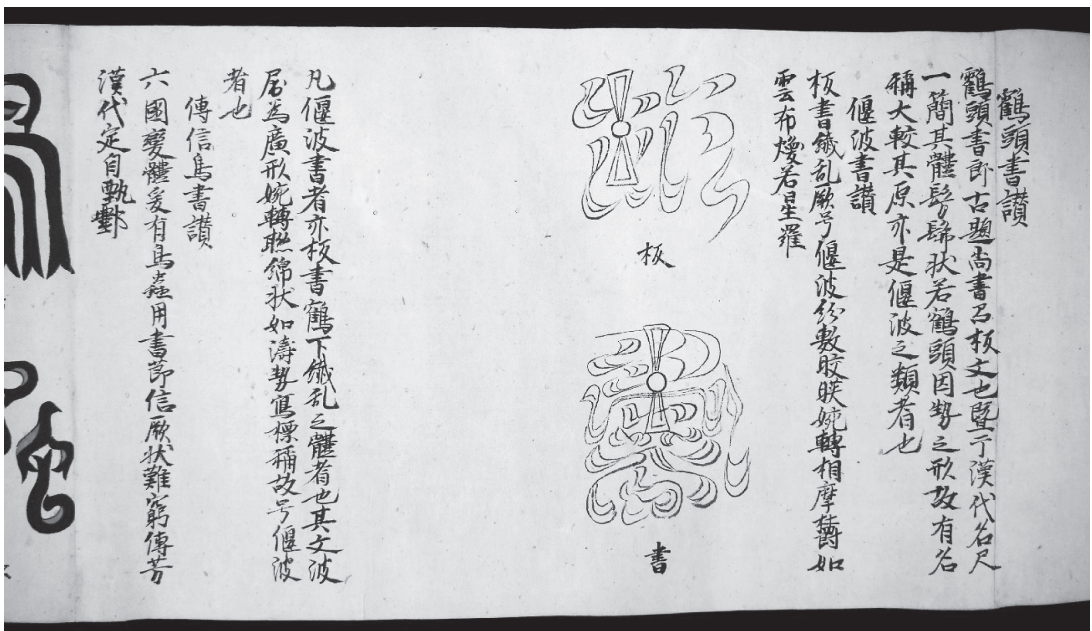 鶴頭書讃
鶴頭書即古題尚書召板文也暨于漢代名尺
一簡其體髣髴状若鶴頭因勢之形故有名
稱大較其原亦是偃波之類者也
偃波書讃
板書纎乱厥号偃波紛敷皎映婉轉相摩欝如
雲布燦若星羅
板
書
凡偃波書者亦板書鶴下纎乱之體者也其文波
居為廣形婉轉聮綿状如濤勢寫標稱故号偃波
者也
傳信鳥書讃
六國變體爰有鳥蟲用書莭信厥状難窮傳芳
漢代定自